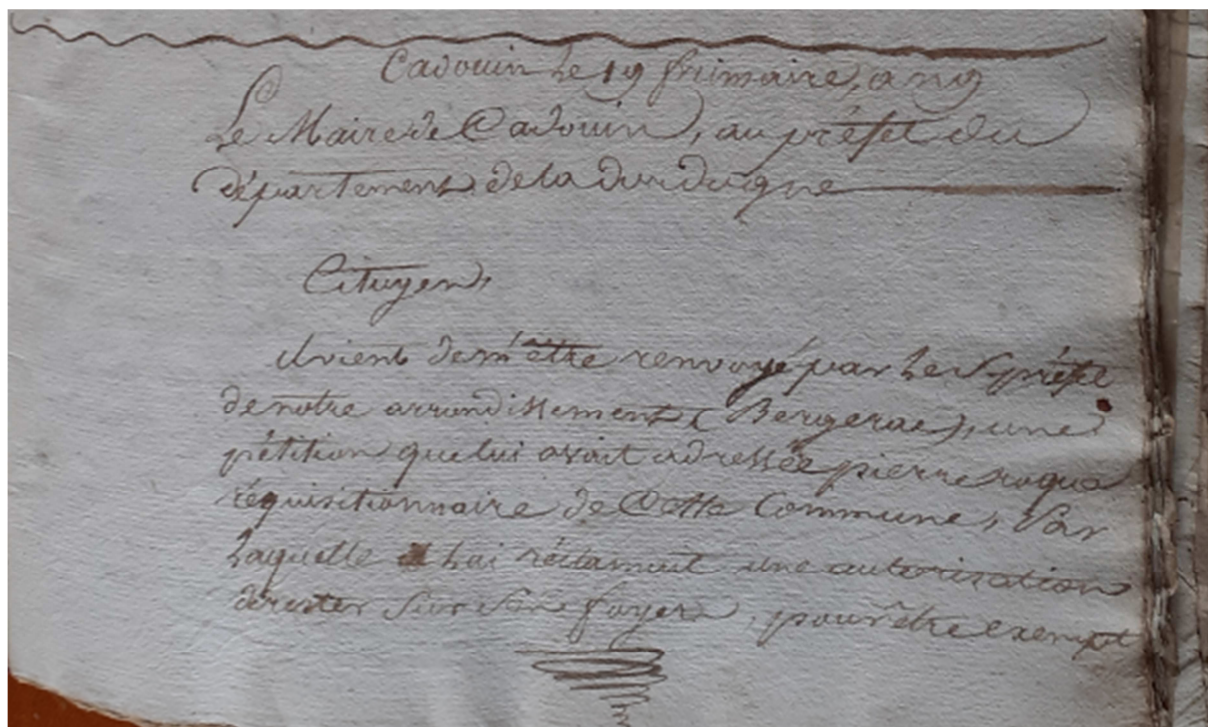 Cadouin Le 19 frimaire, an 9
Le Maire de Cadouin, au préfet du
département de la durdugne
Cituyen,
il vient de m'être renvoyé par Le S. préfet
de notre arrundissement (Bergerac), une
pétition que lui avait adressée pierre roque
réquisitionnaire de Cette Commune, Par
Laquelle il Lui réclamait une autorisation
de rester sur son foyer, pour être exempt